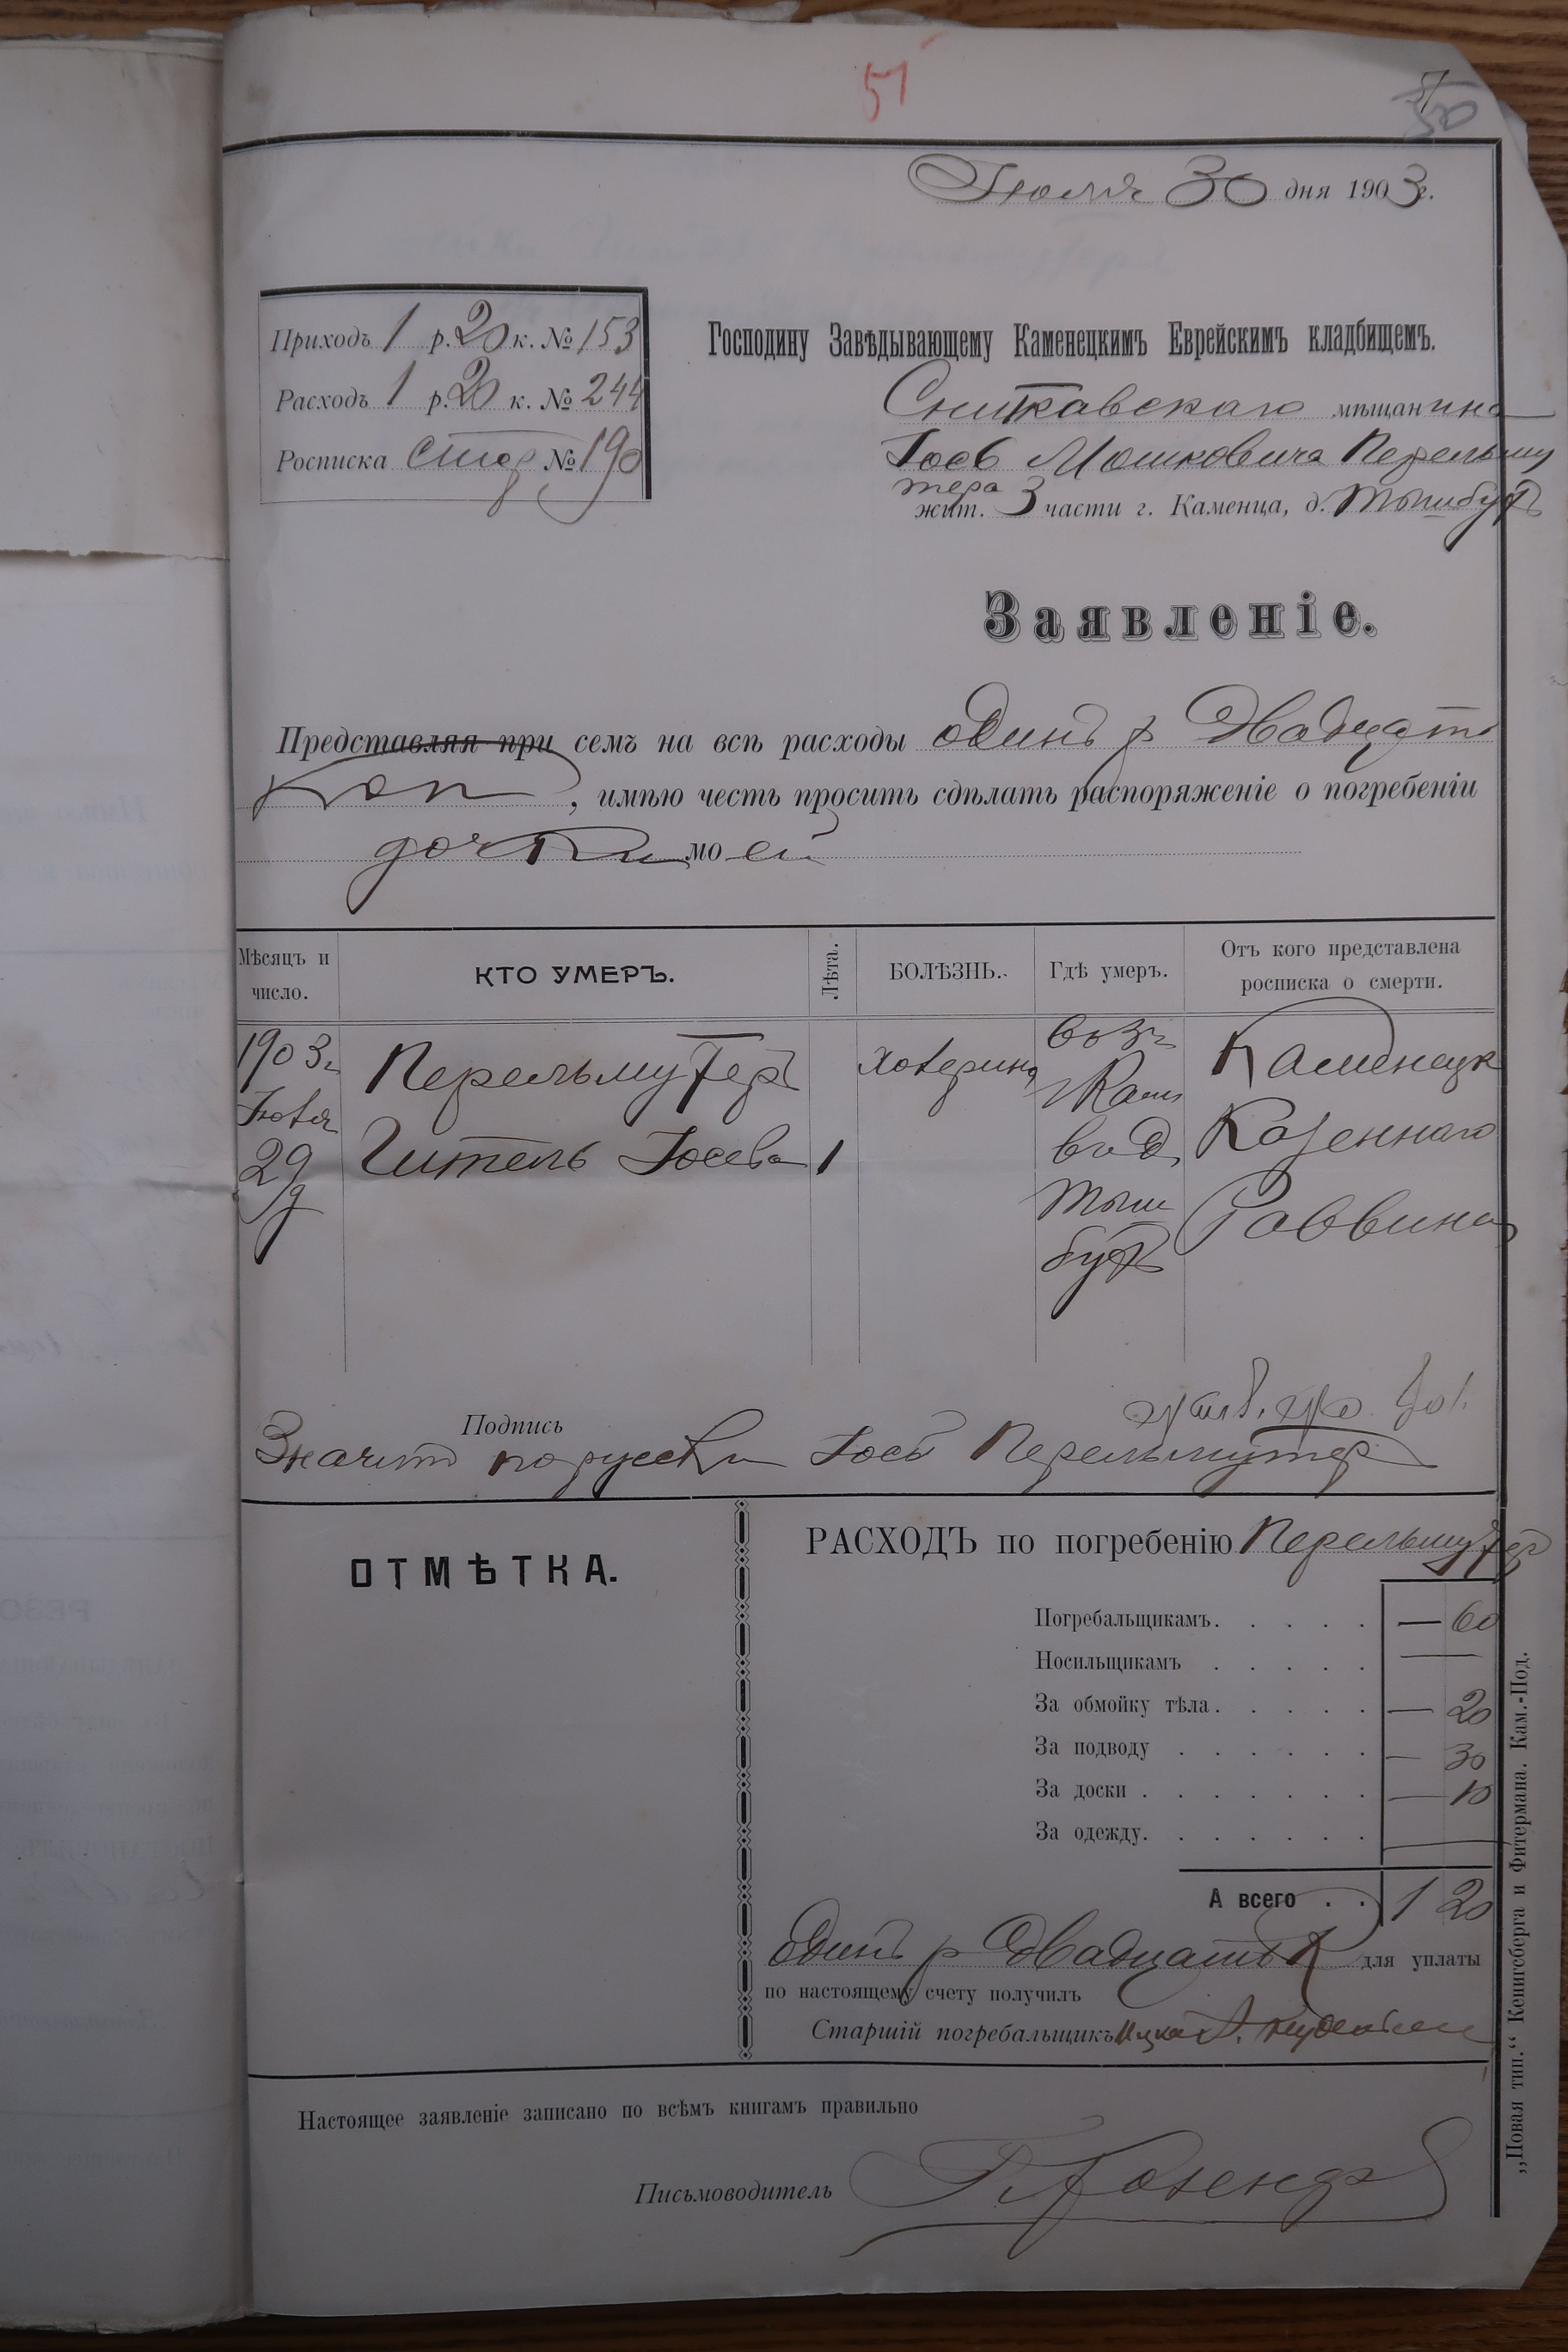 51
50
Іюля 30 дня 1903 г.
Приходъ 1 р. 20 к. № 153
Расходъ 1 р. 20 к. № 244
Росписка стор № 190
Господину Завѣдывающему Каменецкимъ Еврейскимъ кладбищемъ.
Сниткавскаго мѣщанина
Іосъ Мошковича Перельму
тера
жит. 3 части г. Каменца, д.
Заявленіе.
Представляя при семъ на всѣ расходы одинъ р Двадцать
Коп, имѣю честь просить сдѣлать распоряженіе о погребеніи
дочки моей
Мѣсяцъ и число.
КТО УМЕРЪ.
Лѣта.
БОЛѢЗНЬ.
Гдѣ умеръ.
Отъ кого представлена росписка о смерти.
1903 г
Іюля
29
Перельмутеръ
Гитель Іосева
1
Холерина
въ 3 ч
Кам
въ д.
Каменецк
Казеннаго
Раввина
Подпись
Значит по русски Іосъ Перельмутер
ОТМѢТКА.
РАСХОДЪ по погребенію Перельмутер
Погребальщикамъ. — 60
Носильщикамъ —
За обмойку тѣла. — 20
За подводу — 30
За доски — 10
За одежду. —
А всего 1 20
Одинъ р Двадцать К для уплаты
по настоящему счету получилъ
Старшій погребальщикъ Ицка
Настоящее заявленіе записано по всѣмъ книгамъ правильно
Письмоводитель
„Новая тип.“ Кенигсберга и Фитермана. Кам.-Под.